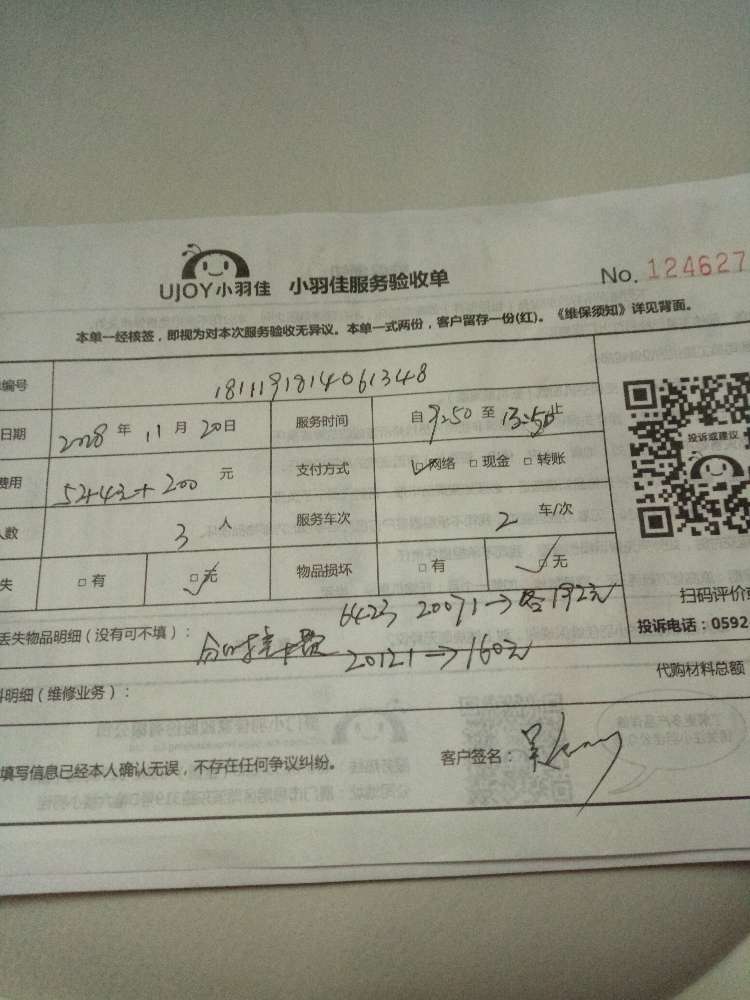 UJOY小羽佳 小羽佳服务验收单 No. 124627
本单一经核签，即视为对本次服务验收无异议。本单一式两份，客户留存一份(红)。《维保须知》详见背面。
编号 1811191814061348
日期 2028 年 11 月 20日 服务时间 自9:50 至 13:50止
费用 544元+200 元 支付方式 □网络 □现金 □转账
人数 3 人 服务车次 2 车/次
失 □有 □无 物品损坏 □有 □无
投诉或建议
扫码评价
投诉电话：0592
丢失物品明细（没有可不填）： 6423 20071→各192元
20121→160元
明细（维修业务）： 代购材料总额
填写信息已经本人确认无误，不存在任何争议纠纷。 客户签名：吴